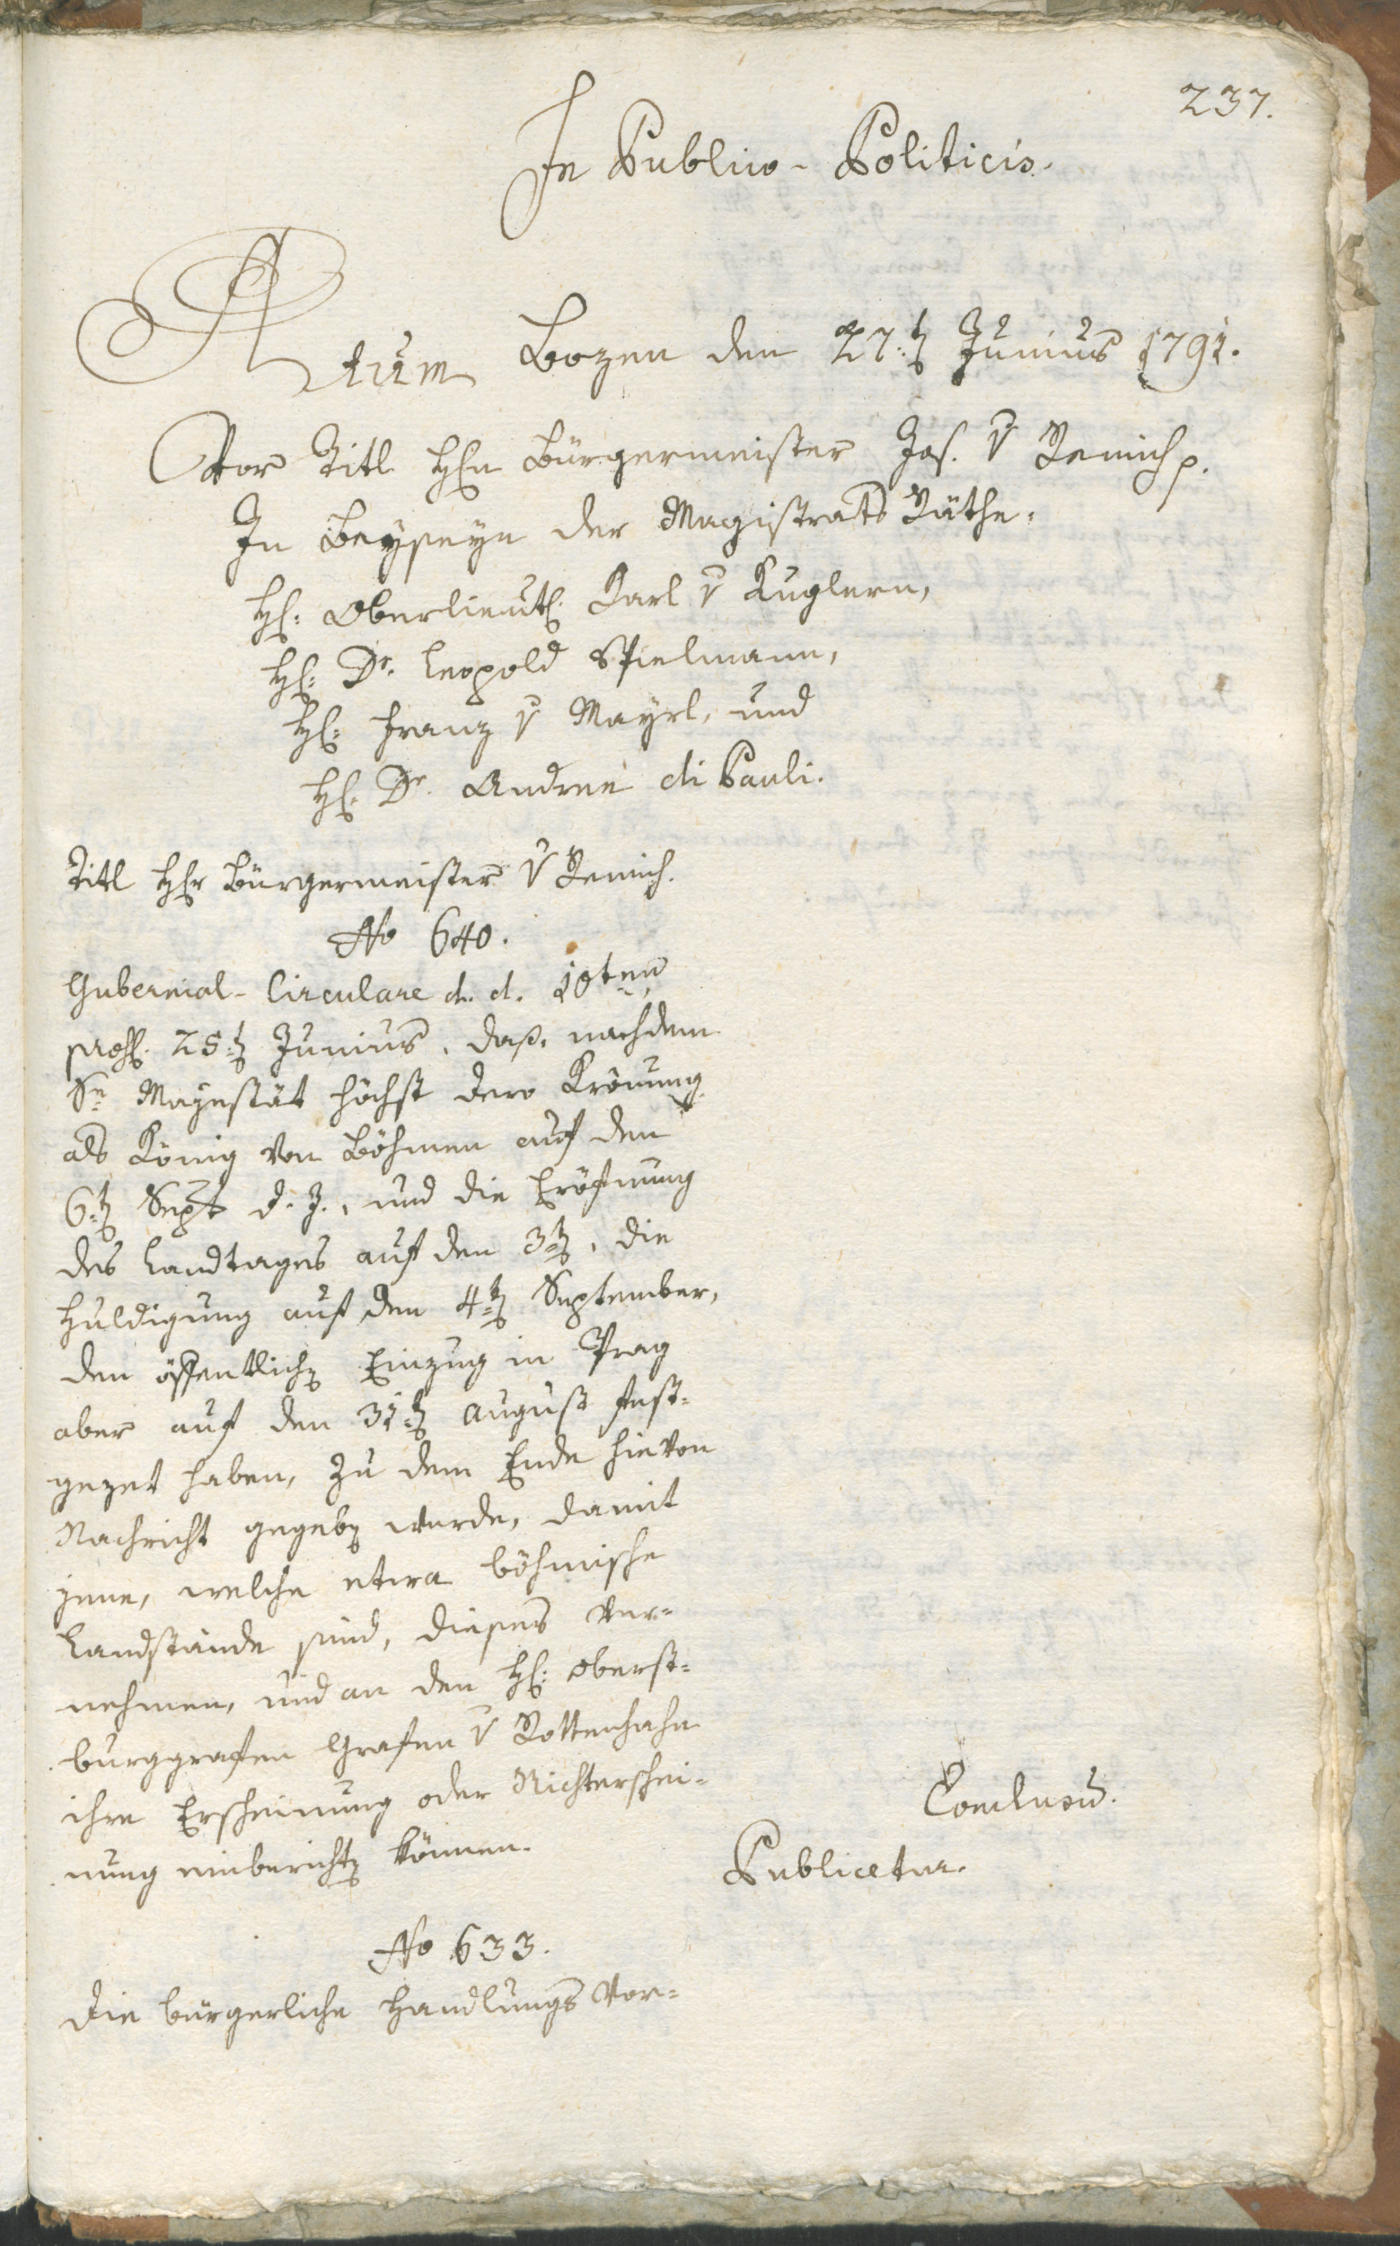 237.
In Publico-Politicis.
Actum Bozen den 27:ten Junius 1791.
Vor Titl H̄en Bürgermeister Jos. v Remich p.
In Beyseyn der Magistrats Räthe,
H: Oberlieut: Karl v Kuglern,
H: Dr. Leopold Spielmann,
H: Franz v Mayrl, und
H: Dr. Andree di Pauli.
Titl Herr Bürgermeister v Remich.
No 640.
Gubernial-Circulare d. d. 10ten
præs. 25:ten Junius, daß, nachdem
Se Majestät höchst dero Krönung
als König von Böhmen auf den
6:ten Sept d. J., und die Eröfnung
des Landtages auf den 3ten, die
Huldigung auf den 4ten September,
den öffentlichen Einzug in Prag
aber auf den 31:ten August fest-
gezet haben, zu dem Ende hievon
Nachricht gegeben werde, damit
jene, welche etwa böhmische
Landstände sind, dieses ver-
nehmen, und an den H: Oberst-
burggrafen Grafen v Rottenhahn
ihre Erscheinung oder Nichterschei-
nung einberichten können.
Conclusum.
Publicetur.
No 633.
Die bürgerliche Handlungs Vor-